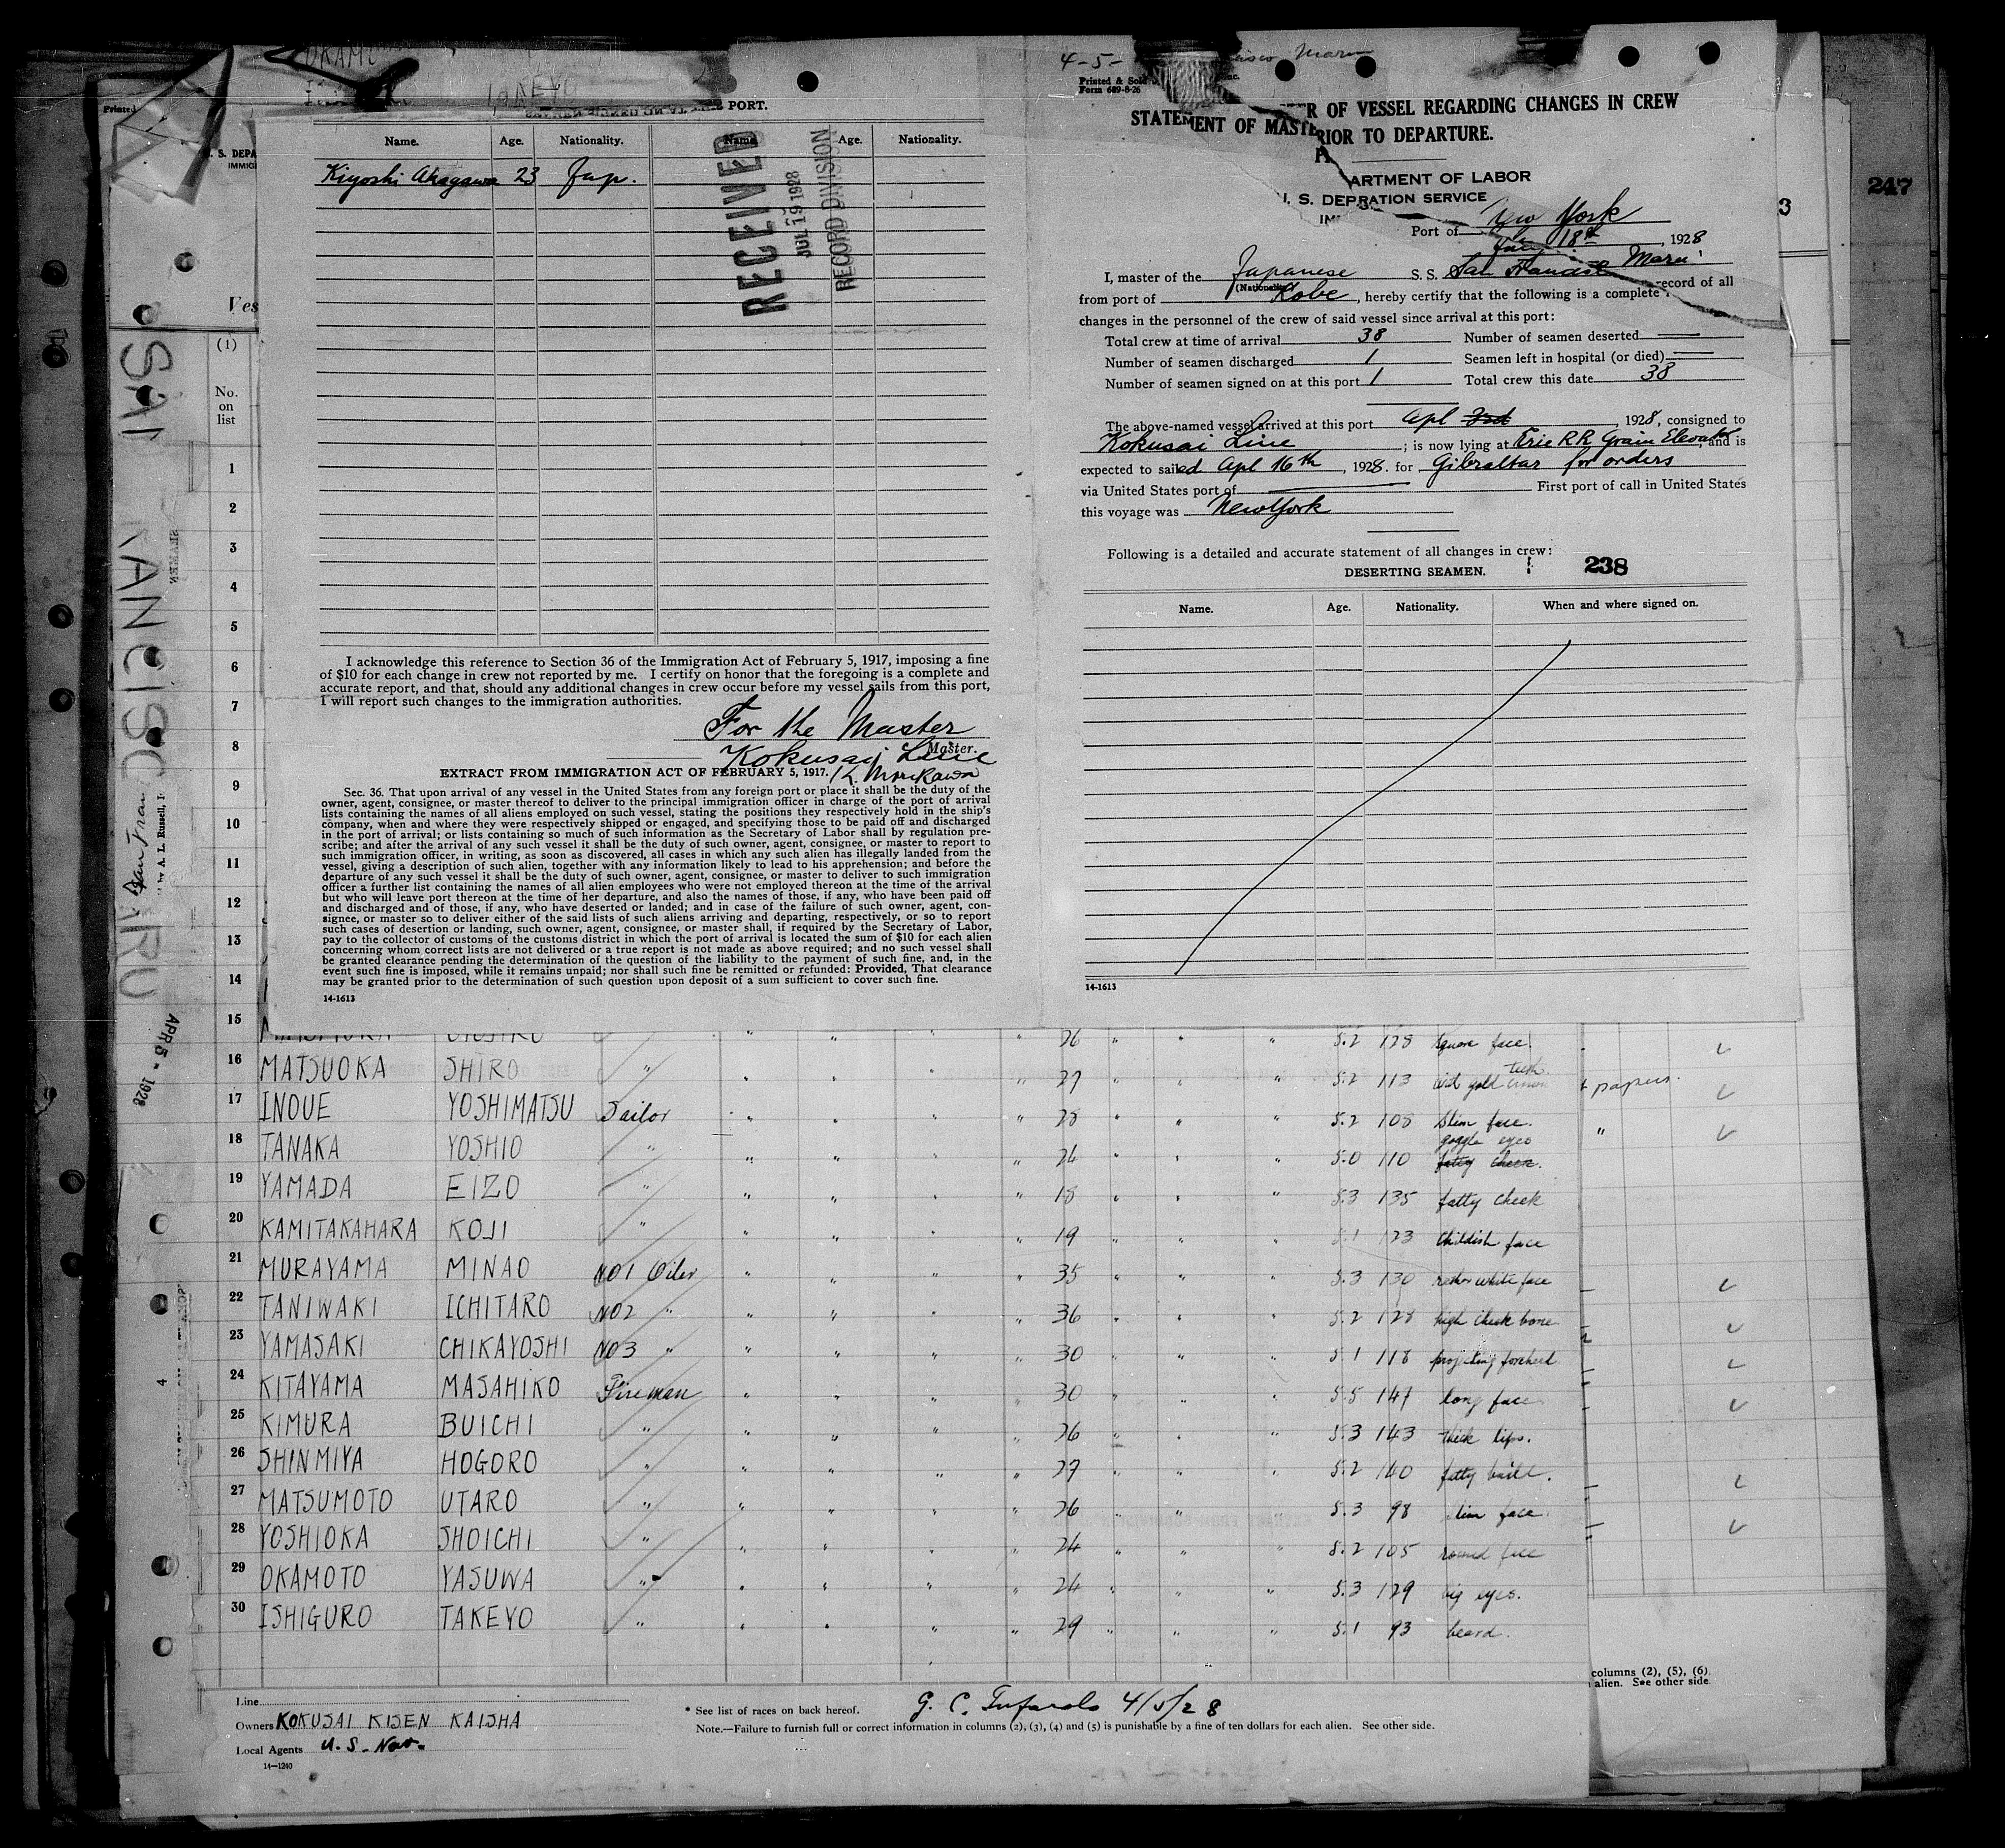 OKAMO
TAKEYO
PORT.
Name. Age. Nationality. Name. Age. Nationality.
Kiyoshi Akagawa 23 Jap.
RECEIVED
JUL 19 1928
RECORD DIVISION
I acknowledge this reference to Section 36 of the Immigration Act of February 5, 1917, imposing a fine
of $10 for each change in crew not reported by me. I certify on honor that the foregoing is a complete and
accurate report, and that, should any additional changes in crew occur before my vessel sails from this port,
I will report such changes to the immigration authorities.
For the Master
Master.
Kokusai Line
K. Morikawa
EXTRACT FROM IMMIGRATION ACT OF FEBRUARY 5, 1917.
Sec. 36. That upon arrival of any vessel in the United States from any foreign port or place it shall be the duty of the
owner, agent, consignee, or master thereof to deliver to the principal immigration officer in charge of the port of arrival
lists containing the names of all aliens employed on such vessel, stating the positions they respectively hold in the ship's
company, when and where they were respectively shipped or engaged, and specifying those to be paid off and discharged
in the port of arrival; or lists containing so much of such information as the Secretary of Labor shall by regulation pre-
scribe; and after the arrival of any such vessel it shall be the duty of such owner, agent, consignee, or master to report to
such immigration officer, in writing, as soon as discovered, all cases in which any such alien has illegally landed from the
vessel, giving a description of such alien, together with any information likely to lead to his apprehension; and before the
departure of any such vessel it shall be the duty of such owner, agent, consignee, or master to deliver to such immigration
officer a further list containing the names of all alien employees who were not employed thereon at the time of the arrival
but who will leave port thereon at the time of her departure, and also the names of those, if any, who have been paid off
and discharged and of those, if any, who have deserted or landed; and in case of the failure of such owner, agent, con-
signee, or master so to deliver either of the said lists of such aliens arriving and departing, respectively, or so to report
such cases of desertion or landing, such owner, agent, consignee, or master shall, if required by the Secretary of Labor,
pay to the collector of customs of the customs district in which the port of arrival is located the sum of $10 for each alien
concerning whom correct lists are not delivered or a true report is not made as above required; and no such vessel shall
be granted clearance pending the determination of the question of the liability to the payment of such fine, and, in the
event such fine is imposed, while it remains unpaid; nor shall such fine be remitted or refunded: Provided, That clearance
may be granted prior to the determination of such question upon deposit of a sum sufficient to cover such fine.
14-1613
4-5- isco Maru
Printed & Sold
Form 689-8-26
STATEMENT OF MASTER OF VESSEL REGARDING CHANGES IN CREW
PRIOR TO DEPARTURE.
ARTMENT OF LABOR
U. S. DEP RATION SERVICE
IM
Port of New York
July 18th, 1928
I, master of the Japanese S. S. San Francisco Maru
(Nationality)
from port of Kobe, hereby certify that the following is a complete record of all
changes in the personnel of the crew of said vessel since arrival at this port:
Total crew at time of arrival 38 Number of seamen deserted
Number of seamen discharged 1 Seamen left in hospital (or died)
Number of seamen signed on at this port 1 Total crew this date 38
The above-named vessel arrived at this port Apl 3rd, 1928, consigned to
Kokusai Line; is now lying at Erie RR Grain Elevator, and is
expected to sailed Apl 16th, 1928. for Gibraltar for orders
via United States port of First port of call in United States
this voyage was New York
Following is a detailed and accurate statement of all changes in crew:
DESERTING SEAMEN. 238
Name. Age. Nationality. When and where signed on.
14-1613
247
3
Printed
S. DEPA
IMMIG
Ves
(1)
No.
on
list
1
2
3
4
5
6
7
8
9
10
11
12
13
14
SAN FRANCISCO MARU
SEAMEN
San Fran
by A. L. Russell, I
APR 5 - 1928
4
15 26 5.2 128 square face.
16 MATSUOKA SHIRO " 27 5.2 113 gold teeth
+ papers.
17 INOUE YOSHIMATSU Sailor " 28 5.2 108 slim face.
18 TANAKA YOSHIO " 24 5.0 110 goggle eyes fatty cheek.
19 YAMADA EIZO " 18 5.3 135 fatty cheek
20 KAMITAKAHARA KOJI " 19 5.1 123 childish face
21 MURAYAMA MINAO NO1 Oiler " 35 5.3 130 rather white face
22 TANIWAKI ICHITARO NO2 " 36 5.2 128 high cheek bone
23 YAMASAKI CHIKAYOSHI NO3 " 30 5.1 118 projecting forehead
24 KITAYAMA MASAHIKO Fireman " 30 5.5 147 long face
25 KIMURA BUICHI " 26 5.3 143 thick lips.
26 SHINMIYA HOGORO " 27 5.2 140 fatty build.
27 MATSUMOTO UTARO " 26 5.3 98 slim face.
28 YOSHIOKA SHOICHI " 24 5.2 105 round face
29 OKAMOTO YASUWA " 24 5.3 129 big eyes.
30 ISHIGURO TAKEYO " 29 5.1 93 beard.
columns (2), (5), (6)
alien. See other side
Line
Owners KOKUSAI KISEN KAISHA
Local Agents U. S. Nav.
14-1240
* See list of races on back hereof. G. C. Tufarolo 4/5/28
Note.—Failure to furnish full or correct information in columns (2), (3), (4) and (5) is punishable by a fine of ten dollars for each alien. See other side.